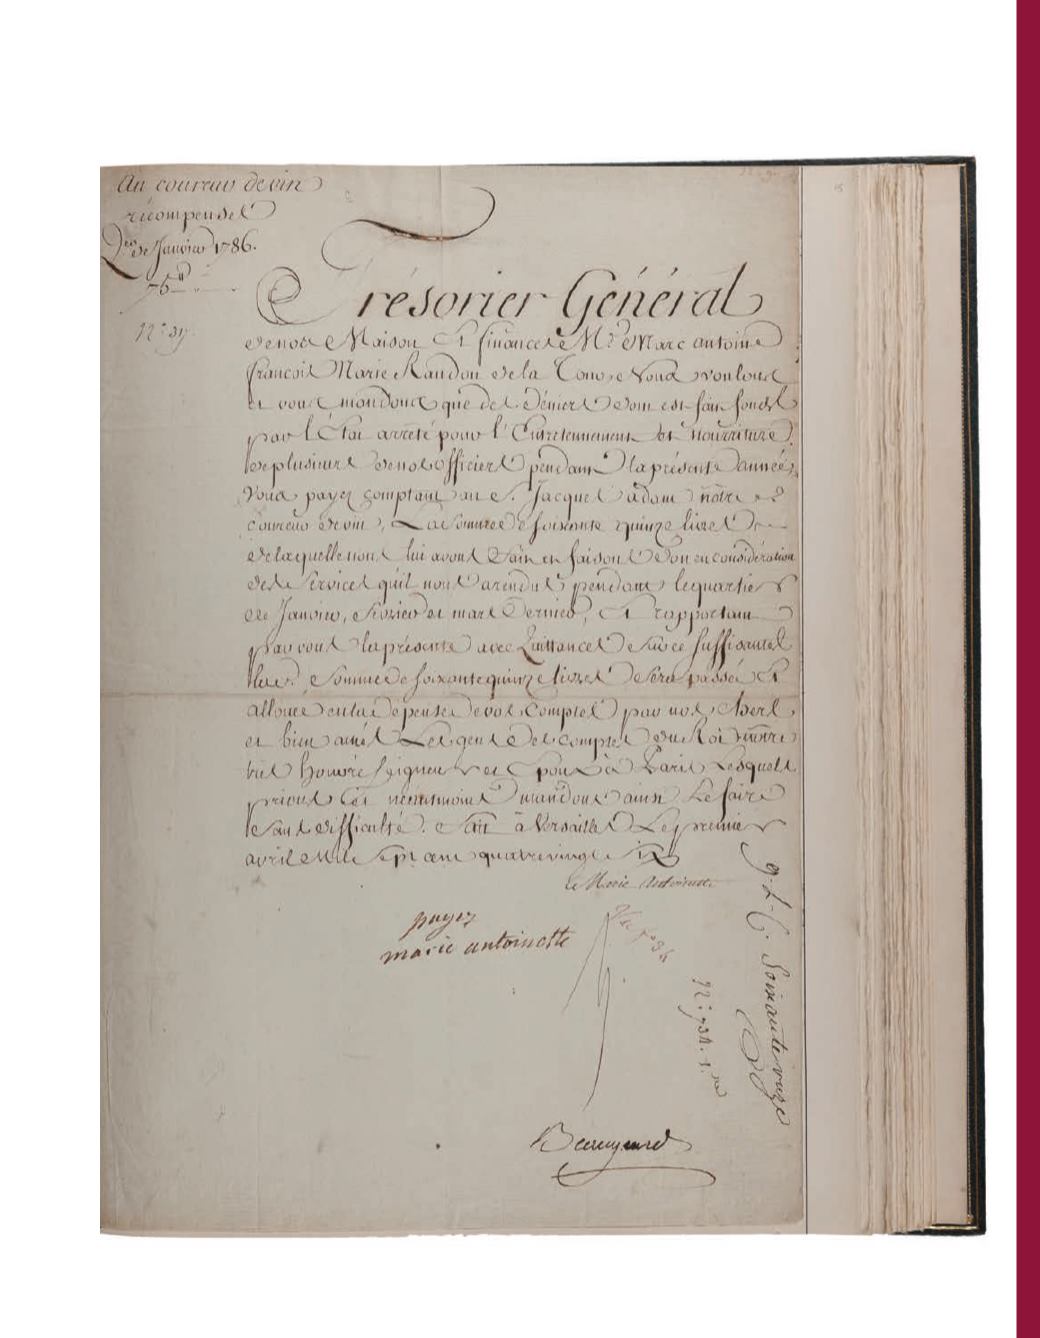 Au coureur de vin
récompense
Qer de Janvier 1786.
75
N° 39
Trésorier Général
de notre Maison et finances Me Marc antoine
françois Marie Randon de la Tour, Nous voulons
et vous mandons que des deniers dont est fait fonds
par l'État arrêté pour l'Entretennement et nourriture
de plusieurs de nos officiers pendant la présente année,
Vous payez comptant au S. Jacques adam nôtre
coureur de vin, La somme de soixante quinze livres
de laquelle nous lui avons fait et faisons don en considération
des Services qu'il nous a rendus pendant le quartier
de Janvier, février et mars dernier, Et rapportant
par vous la présente avec Quittance de lui ce suffisante
lad. somme de soixante quinze livres sera passée et
allouée en la dépense de vos Comptes par nos chers
et bien amés Les gens des comptes du Roi nôtre
très honoré Seigneur et Epoux à Paris Lesquels
prions et néanmoins mandons ainsi Le faire
sans difficulté. fait à Versailles Le premier
avril Mil Sept cent quatrevingt Six
Marie Antoinette
payez
marie antoinette
N° 934. 1.
Soixante onze
Beaugeard